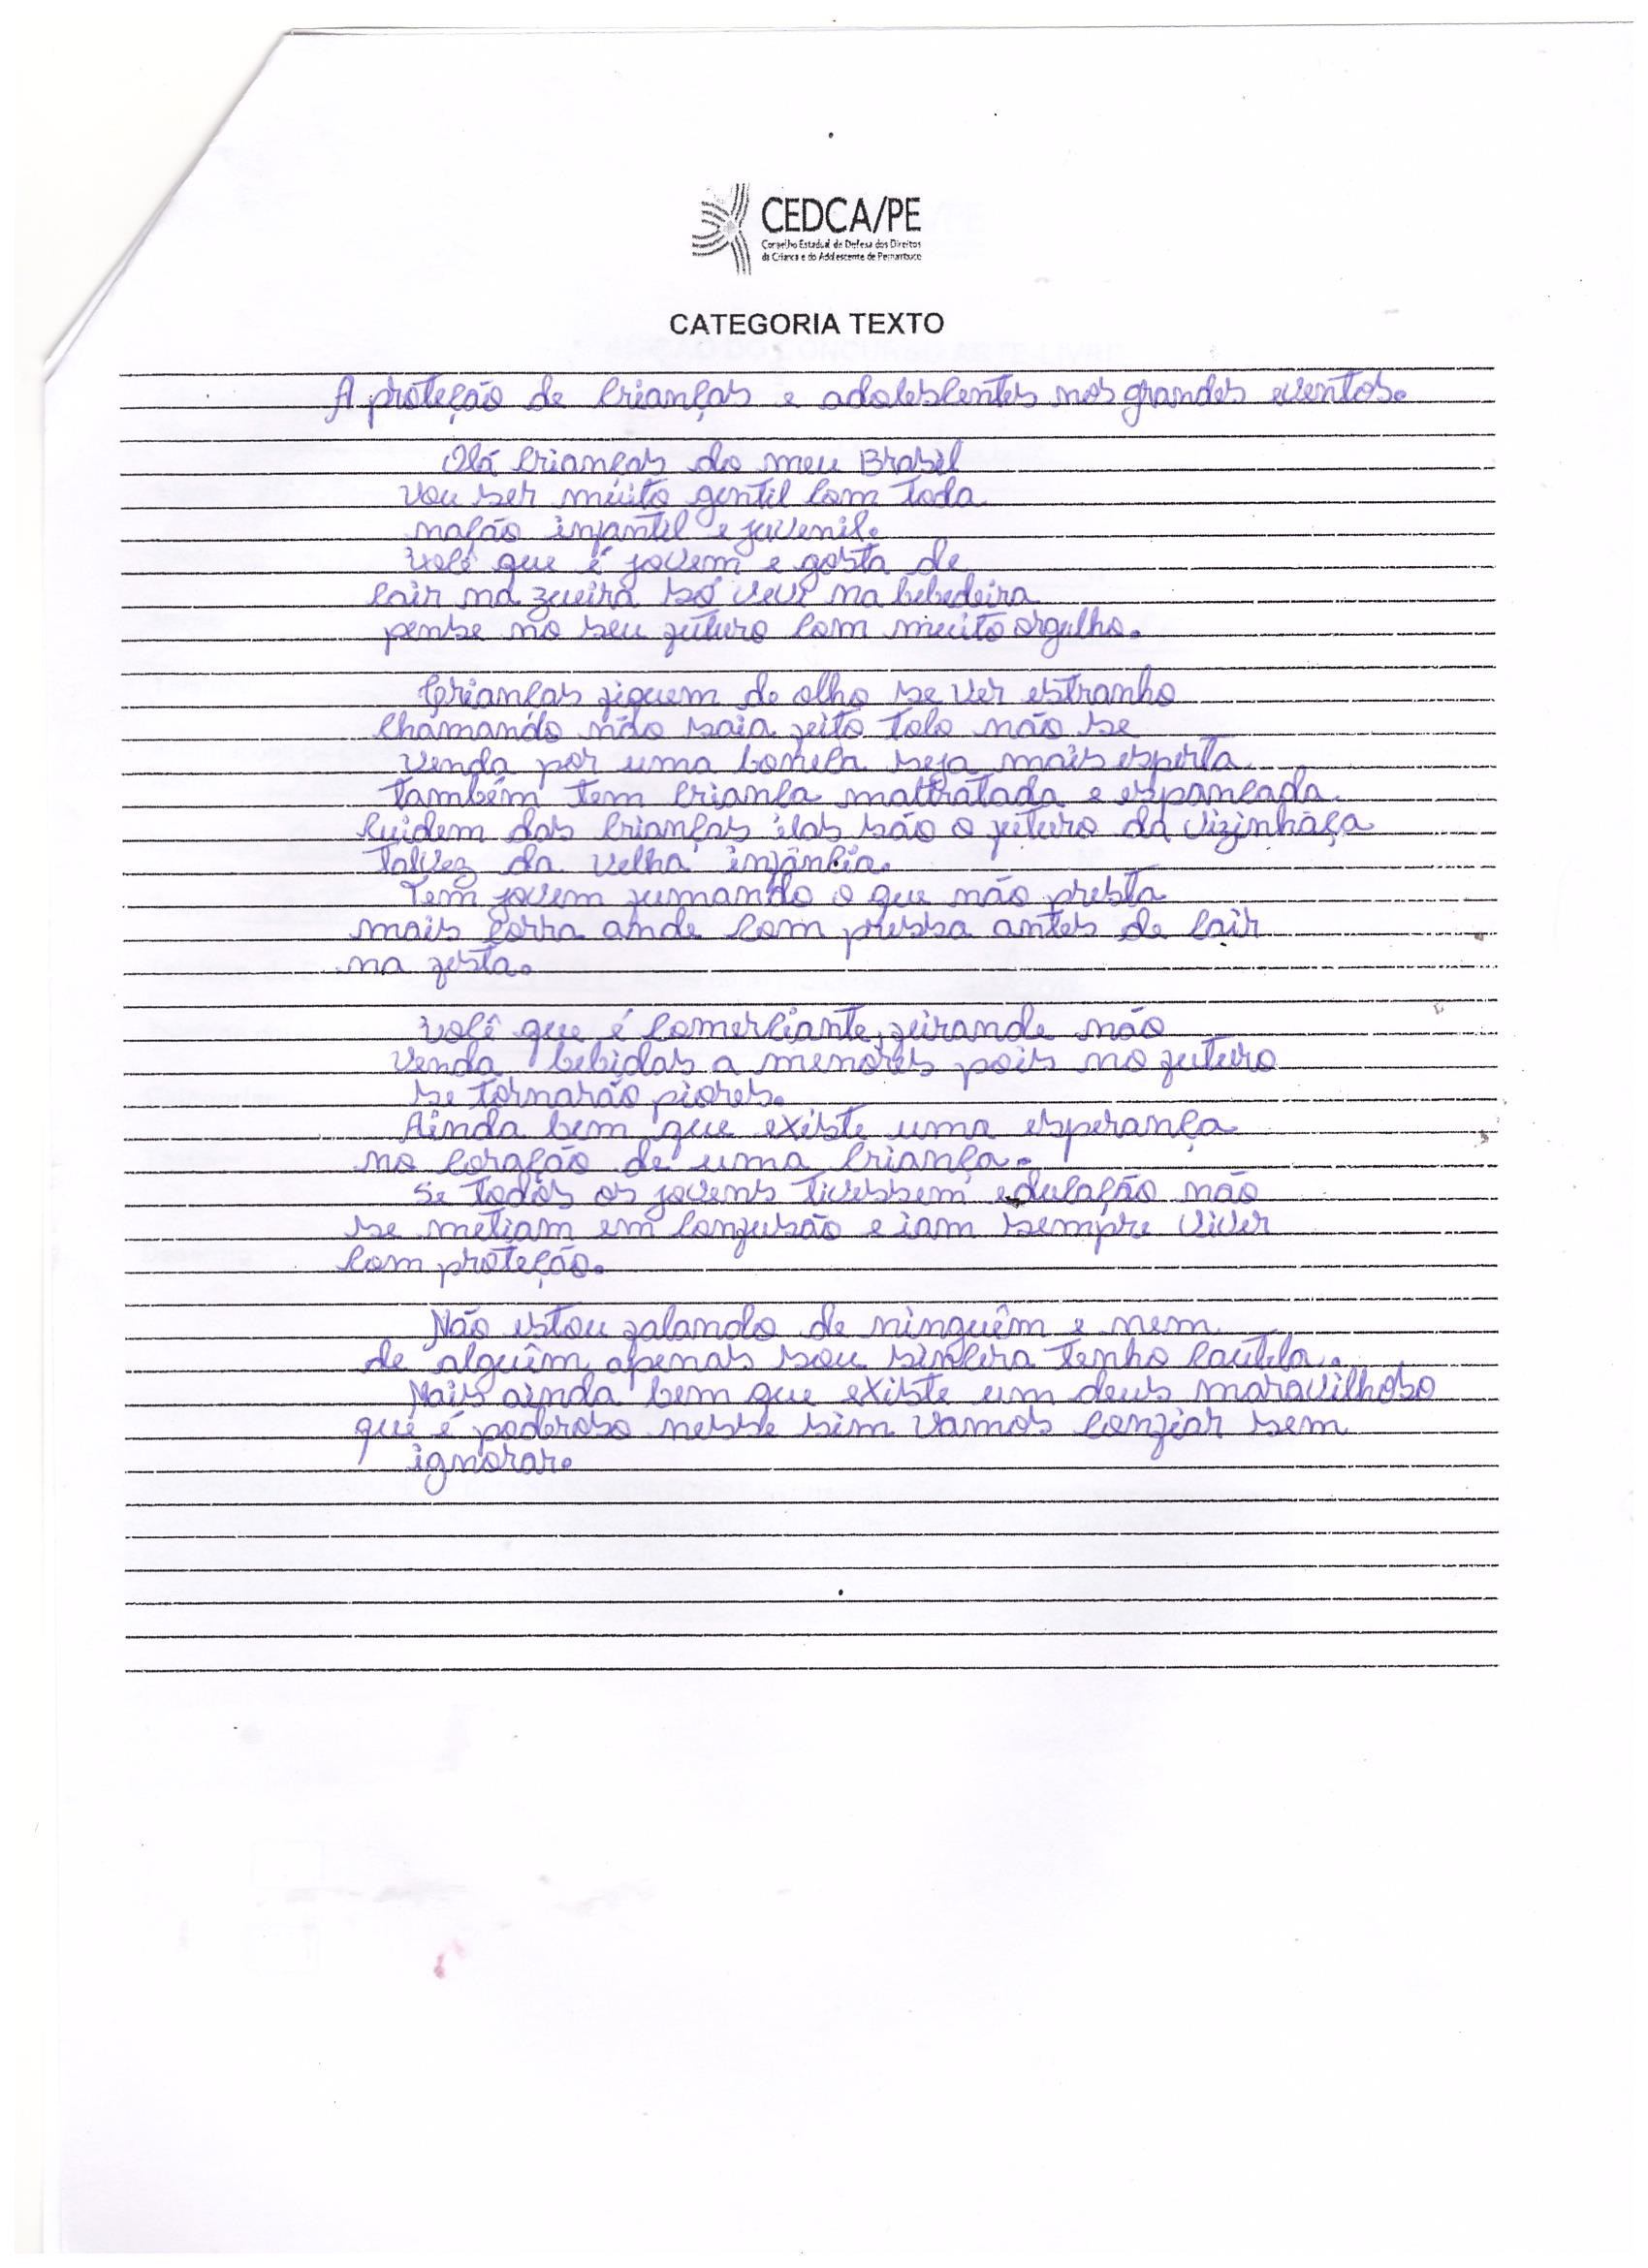 CEDCA/PE
Conselho Estadual de Defesa dos Direitos
da Criança e do Adolescente de Pernambuco
CATEGORIA TEXTO
A proteção de crianças e adolescentes nos grandes eventos.
Olá crianças do meu Brasil
vou ser muito gentil com toda
nação infantil e juvenil.
você que é jovem e gosta de
cair na zueira só vive na bebedeira
pense no seu futuro com muito orgulho.
Crianças fiquem de olho se ver estranho
chamando não saia feito tolo não se
venda por uma boneca seja mais esperta
também tem criança maltratada e espancada.
Cuidem das crianças elas são o futuro da vizinhaça
talvez da velha infância.
Tem jovem fumando o que não presta
mais corra ande com pressa antes de cair
na festa.
você que é comerciante, feirande não
venda bebidas a menores pois no futuro
se tornarão piores.
Ainda bem que existe uma esperança
no coração de uma criança.
Se todos os jovens tivessem educação não
se metiam em confusão e iam sempre viver
com proteção.
Não estou falando de ninguêm e nem
de alguêm, apenas sou sincera tenho cautela.
Mais ainda bem que existe um deus maravilhoso
que é poderoso nesse sim vamos confiar sem
ignorar.